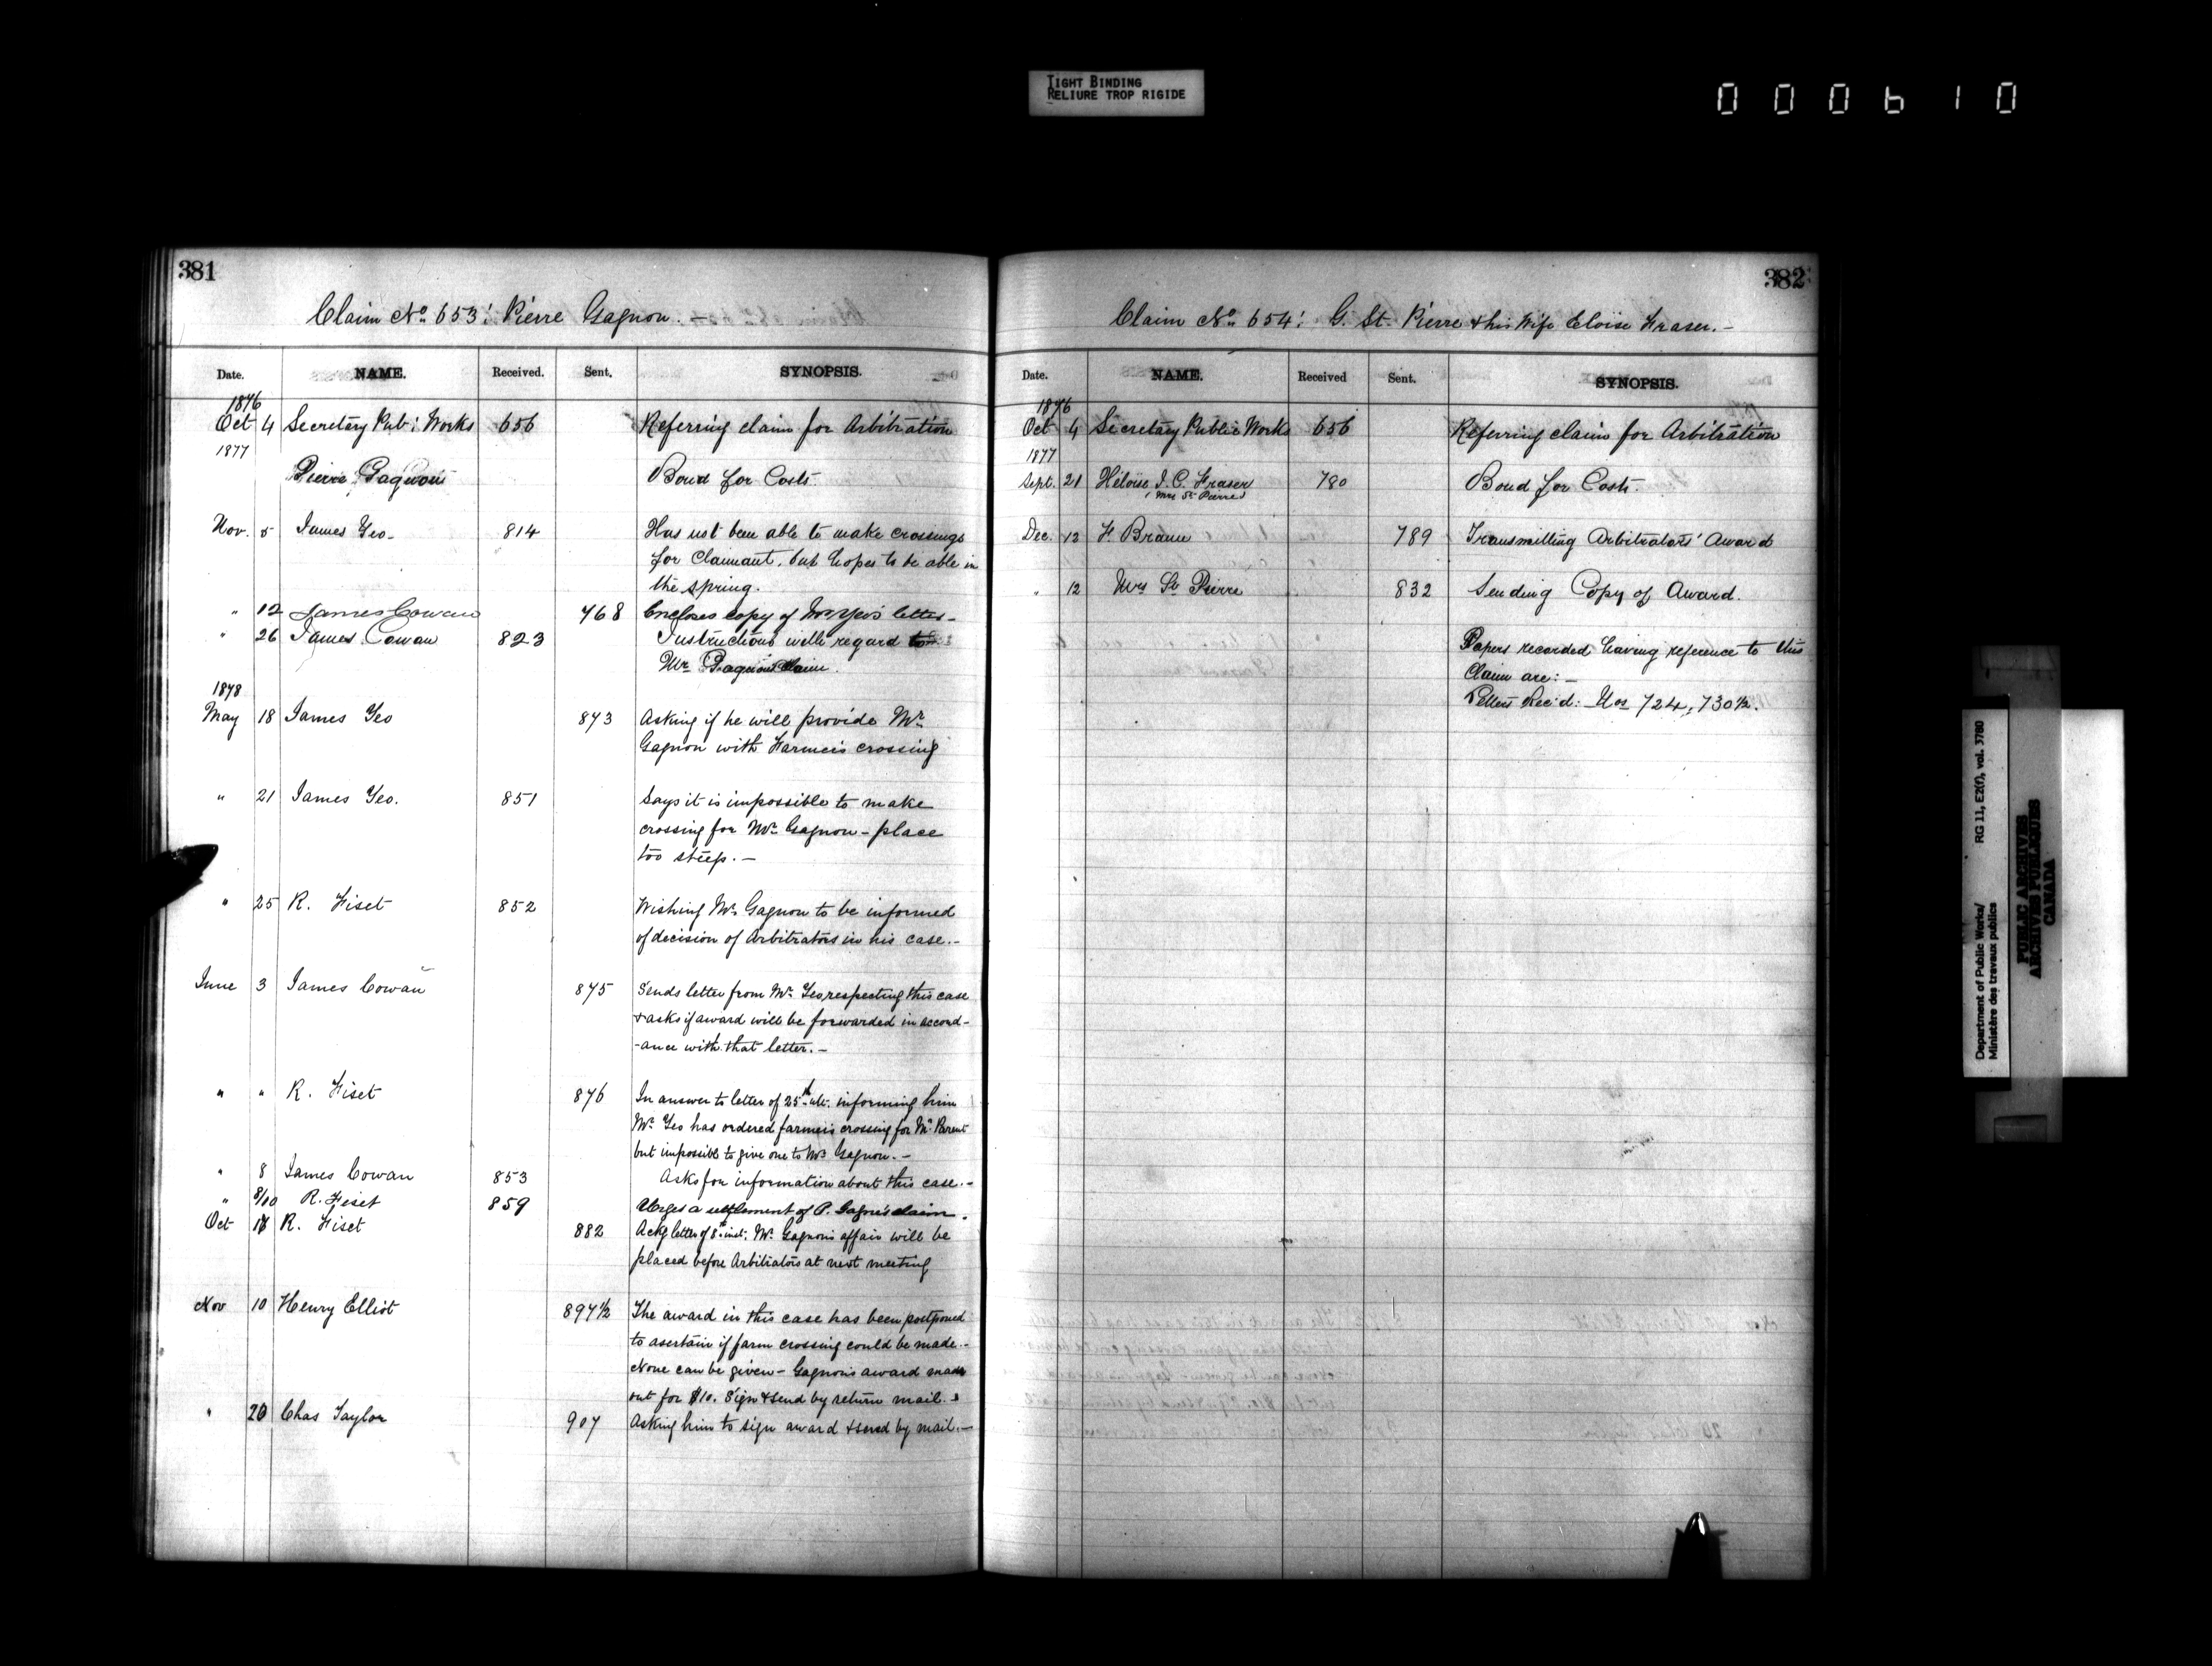 TIGHT BINDING
RELIURE TROP RIGIDE
000610
381
Claim No. 653: Pierre Gagnon. —
Date. NAME. Received. Sent. SYNOPSIS.
1876
Oct 4 Secretary Pub: Works 656 Referring claim for Arbitration
1877
Pierre Gagnon Bond for Costs.
Nov. 5 James Yeo. 814 Has not been able to make crossings
for Claimant, but hopes to be able in
the spring.
" 12 James Cowan 768 Encloses copy of Mr Yeo's letter —
" 26 James Cowan 823 Instructions with regard to
Mr Gagnon's Claim.
1878
May 18 James Yeo 873 Asking if he will provide Mr
Gagnon with Farmer's crossing
" 21 James Yeo. 851 Says it is impossible to make
crossing for Mr Gagnon — place
too steep. —
" 25 R. Fiset 852 Wishing Mr Gagnon to be informed
of decision of Arbitrators in his case. —
June 3 James Cowan 875 Sends letter from Mr Yeo respecting this case
& asks if award will be forwarded in accord-
-ance with that letter. —
" " R. Fiset 876 In answer to letter of 25th ult. informing him
Mr Yeo has ordered farmer's crossing for Mr Parent
but impossible to give one to Mr Gagnon. —
" 8 James Cowan 853 Asks for information about this case. —
" 8/10 R. Fiset 859 Urges a settlement of P. Gagné's claim.
Oct 17 R. Fiset 882 Ackg letter of 8th inst: Mr Gagnon's affair will be
placed before Arbitrators at next meeting
Nov 10 Henry Elliot 897½ The award in this case has been postponed
to asertain if farm crossing could be made. —
None can be given — Gagnon's award made
out for $10. Sign & send by return mail.
" 20 Chas Taylor 907 Asking him to sign award & send by mail. —
382
Claim No. 654: G. St. Pierre & his Wife Eloise Fraser. —
Date. NAME. Received Sent. SYNOPSIS.
1876
Oct 4 Secretary Public Works 656 Referring claim for Arbitration
1877
Sept. 21 Héloise J. C. Fraser 780 Bond for Costs.
(Mrs St Pierre)
Dec. 12 F. Braun 789 Transmitting Arbitrators' Award
" 12 Mrs St Pierre 832 Sending Copy of Award.
Papers recorded having reference to this
Claim are: —
Letters Rec'd: Nos 724, 730½.
Department of Public Works/ RG 11, E2(f), vol. 3780
Ministère des travaux publics
PUBLIC ARCHIVES
ARCHIVES PUBLIQUES
CANADA